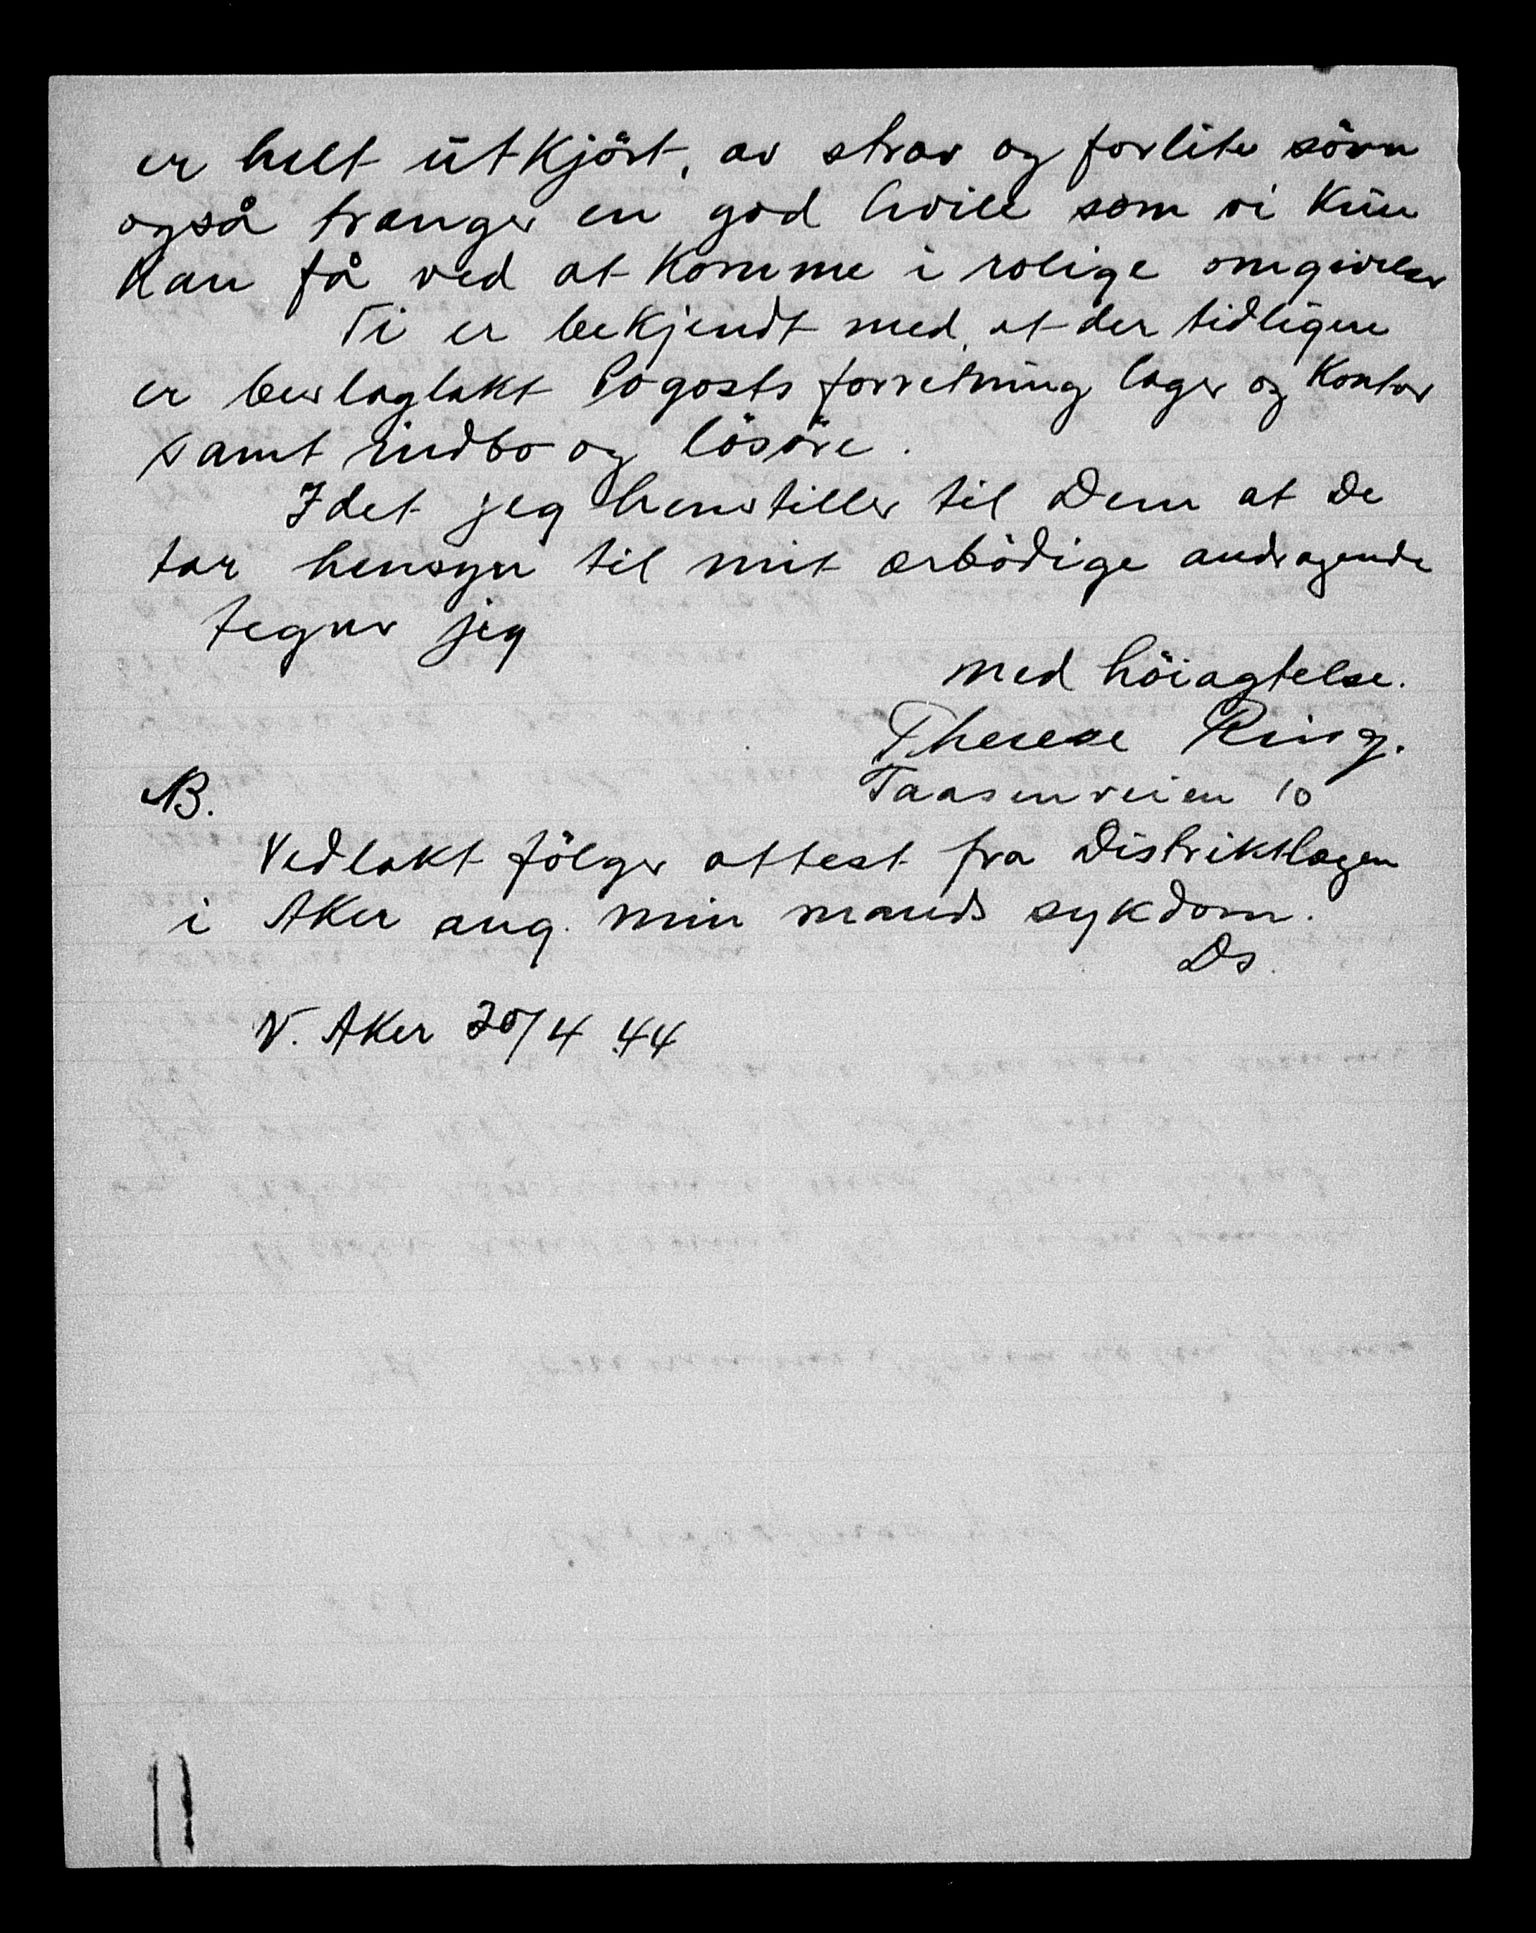 er helt ūtkjört, av strav og forlite sövn
også trænger en god hvile som vi kūn
kan få ved at komme i rolige omgivelser
Vi er bekjendt med, at der tidligere
er beslaglakt forretning lager og kontor
samt indbo og lösöre.
Idet jeg henstiller til Dem at De
tar hensyn til mit ærbödige andragende
tegner jeg
med höiagtelse.
Therese Ring.
Taasenveien 10
NB.
Vedlakt fölger attest fra Distriktlægen
i Aker ang. min mands sykdom.
Ds.
V. Aker 20/4 44